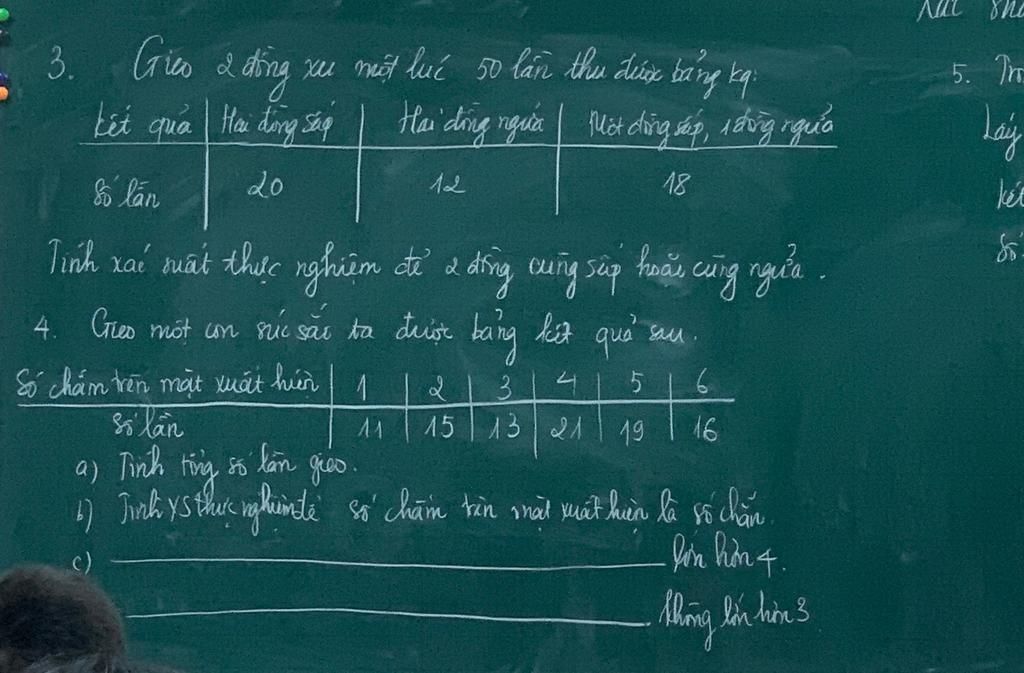 3. Gieo 2 đồng xu một lúc 50 lần thu được bảng kq:
kết quả | Hai đồng sấp | Hai đồng ngửa | Một đồng sấp, 1 đồng ngửa
Số lần | 20 | 12 | 18
Tính xác suất thực nghiệm để 2 đồng cùng sấp hoặc cùng ngửa.
4. Gieo một con súc sắc ta được bảng kết quả sau.
Số chấm trên mặt xuất hiện | 1 | 2 | 3 | 4 | 5 | 6
Số lần | 11 | 15 | 13 | 21 | 19 | 16
a) Tính tổng số lần gieo.
b) Tính XS thực nghiệm để số chấm trên mặt xuất hiện là số chẵn.
c) lớn hơn 4.
không lớn hơn 3
5.
Lấy
kết
Số